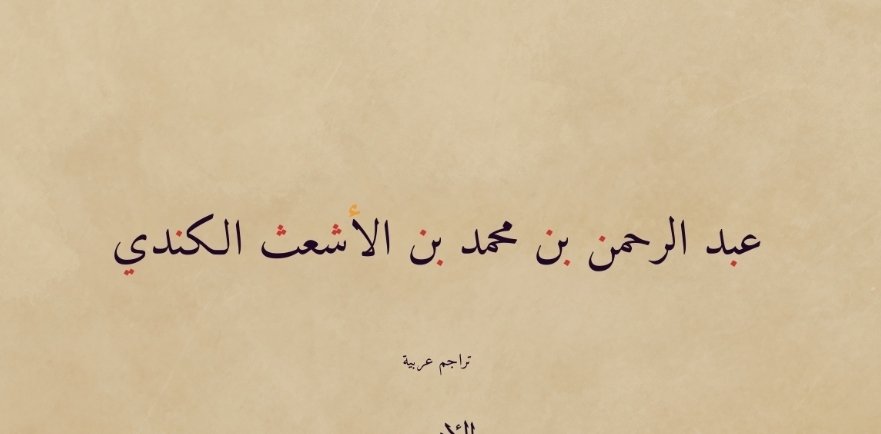 عبد الرحمن بن محمد بن الأشعث الكندي
تراجم عربية